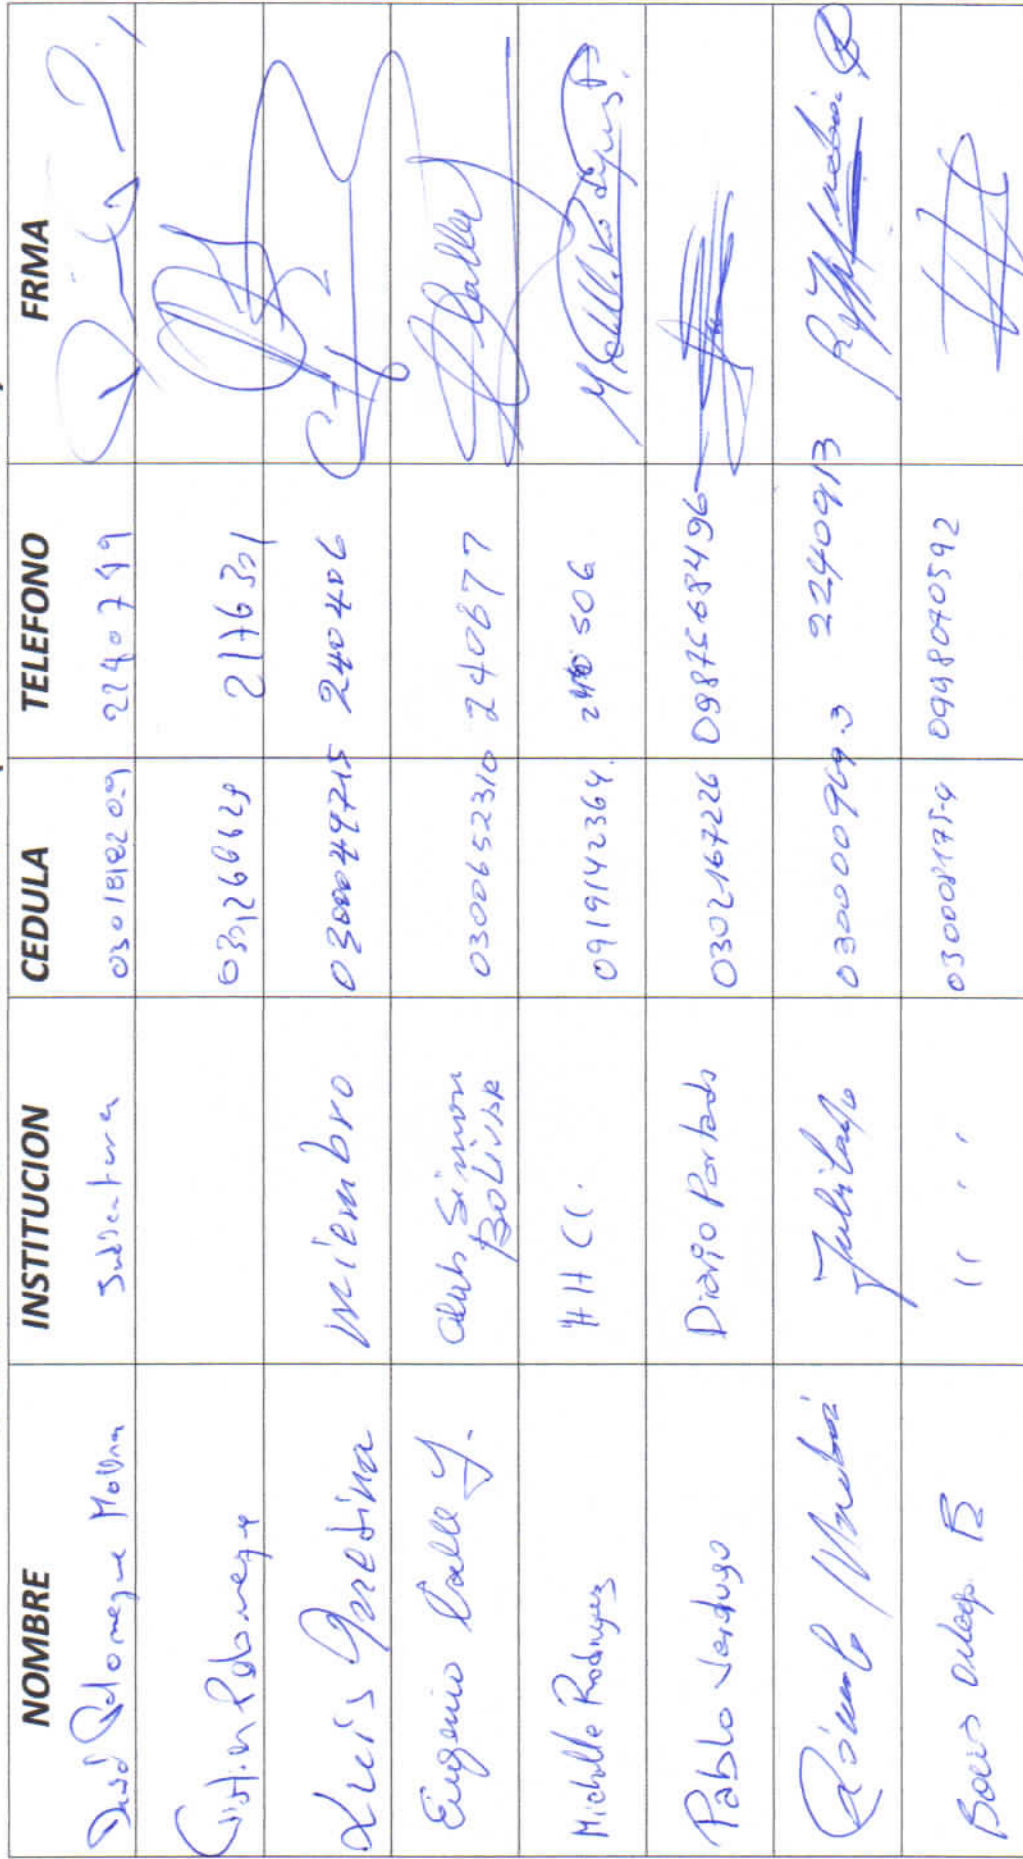 NOMBRE INSTITUCION CEDULA TELEFONO FRMA
David Palomeque Molina Judicatura 0301818209 2240799
Cristian Palomeque 2176301
Luis miembro 0300049715 240406
Eugenio Calle J. Club Simon
BOLIVAR 0300652310 240677
Michelle Rodriguez HH CC. 0919142364. 240506
Pablo Verdugo Diario Portada 0302167226 0987568496
Jubilado 030000969-3 2240913
" " 030008175-4 0998040592